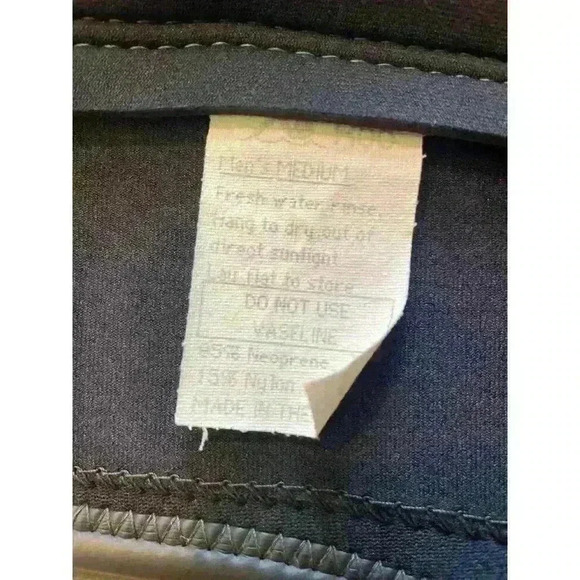 Men's MEDIUM
Fresh water rinse.
Hang to dry out of
direct sunlight
Lay flat to store
DO NOT USE
VASELINE
85% Neoprene
15% Nylon
MADE IN THE